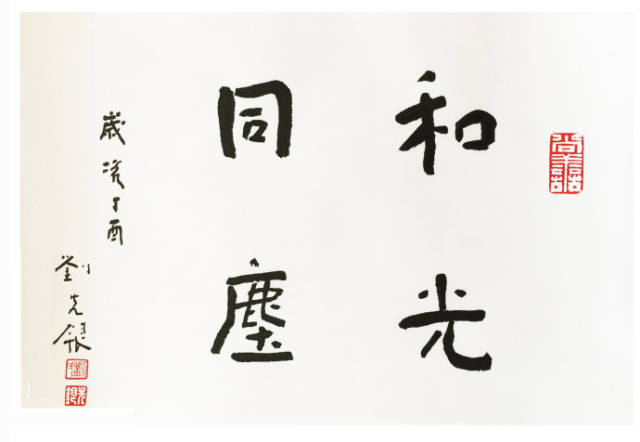 和光
同塵
歲次丁酉
劉克銀